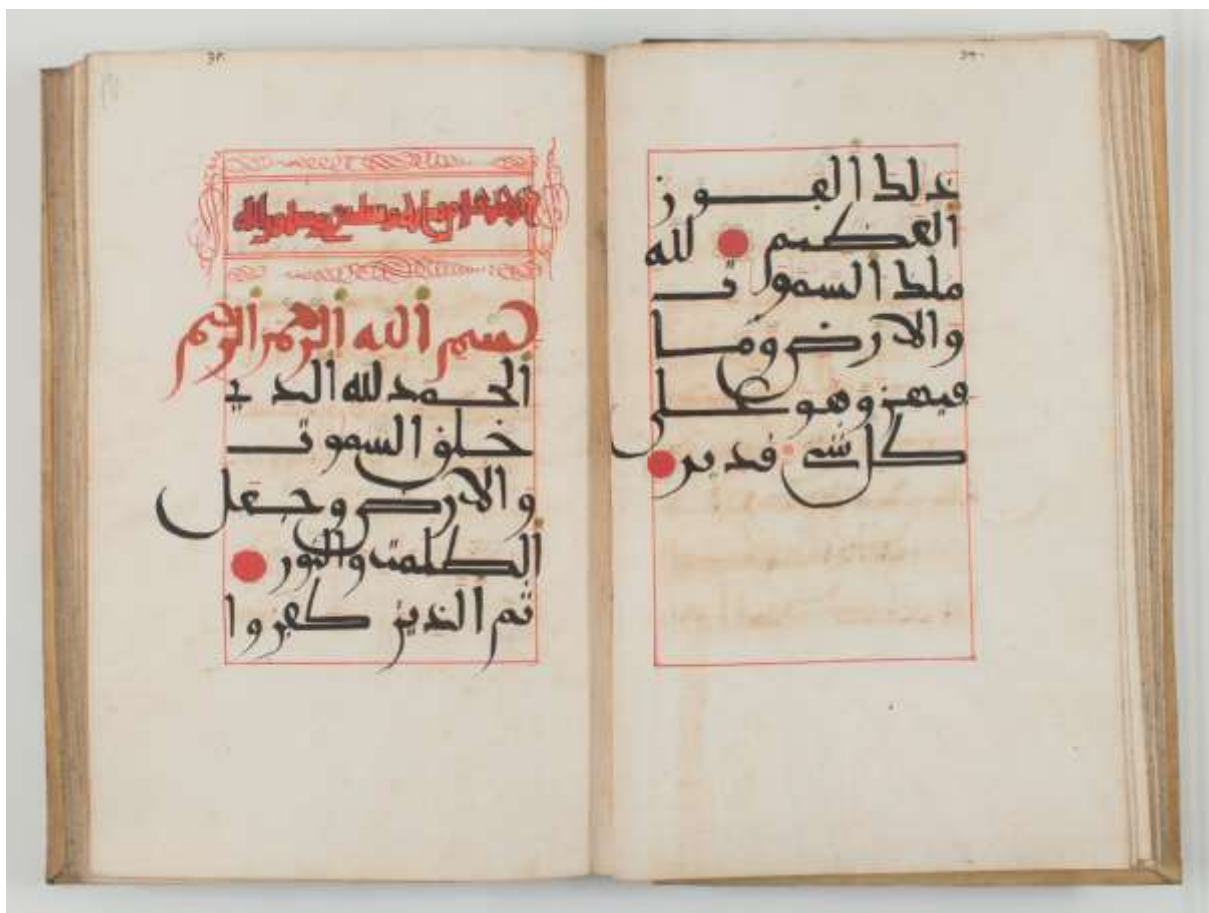 ذلك الفوز
العظيم لله
ملك السموت
والارض وما
فيهن وهو على
كل شىء قدير
بسم الله الرحمن الرحيم
الحمد لله الذي
خلق السموت
والارض وجعل
الظلمت والنور
ثم الذين كفروا